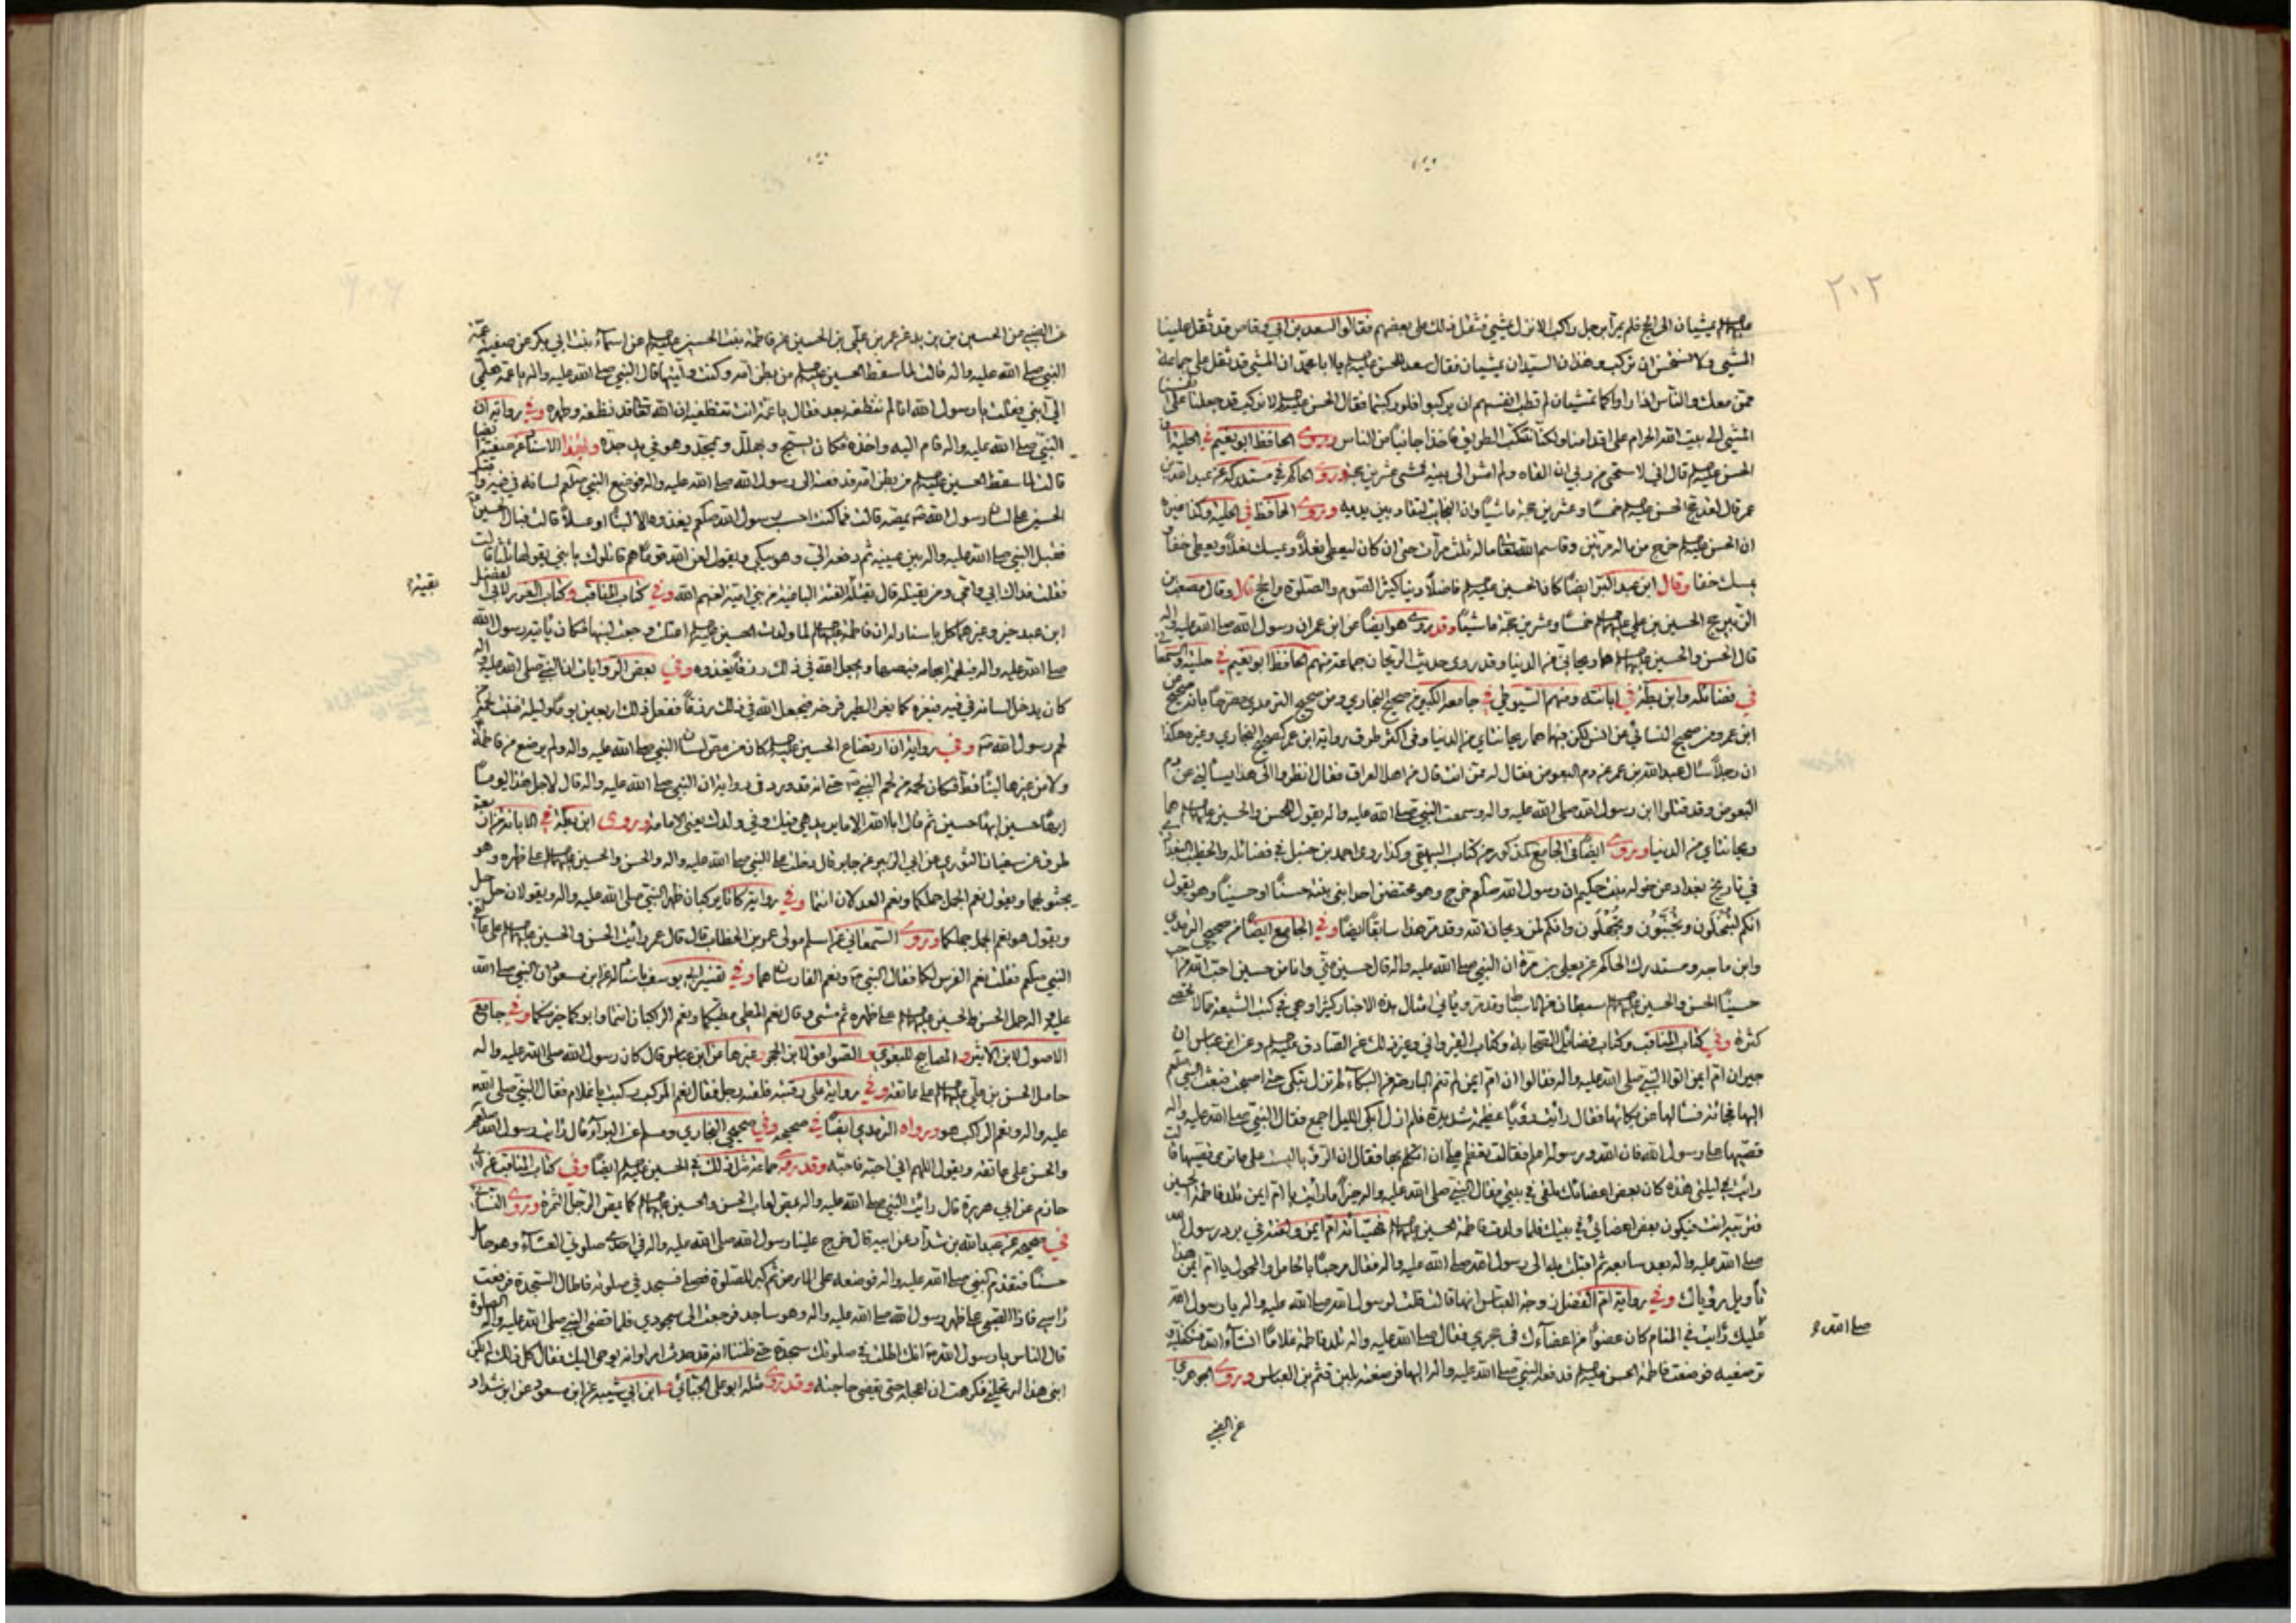 ٢٠٢
عليهم السلم يمشيان الى الحج فلم يمرا برجل راكب الا نزل يمشي فثقل ذلك على بعضهم فقالوا لسعد بن ابي وقاص قد ثقل علينا
المشي ولا نستحسن ان نركب وهذان السيدان يمشيان فقال سعد للحسن عليه السلم يا ابا محمد ان المشي قد ثقل على جماعة
ممن معك والناس اذا راوكما تمشيان لم تطب انفسهم ان يركبوا فلو ركبتما فقال الحسن عليه السلم لا نركب قد جعلنا على انفسنا
المشي الى بيت الله الحرام على اقدامنا ولكنا نتنكب الطريق فاخذا جانبا من الناس وروى الحافظ ابو نعيم في الحلية ان
الحسن عليه السلم قال اني لاستحيي من ربي ان القاه ولم امش الى بيته فمشى عشرين حجة وروى الحاكم في مستدركه عن عبد الله بن
عمر قال لقد حج الحسن عليه السلم خمسا وعشرين حجة ماشيا وان النجائب لتقاد بين يديه وروى الحافظ في الحلية وكذا غيره
ان الحسن عليه السلم خرج من ماله مرتين وقاسم الله تعالى ماله ثلث مرات حتى ان كان ليعطي نعلا ويمسك نعلا ويعطي خفا
ويمسك خفا وقال ابن عبد البر ايضا كان الحسين عليه السلم فاضلا دينا كثير الصوم والصلوة والحج قال وقال مصعب بن
الزبير حج الحسين بن علي عليهم السلم خمسا وعشرين حجة ماشيا وقد روى هو ايضا عن ابن عمر ان رسول الله صلى الله عليه واله
قال الحسن والحسين عليهم السلم هما ريحانتي من الدنيا وقد روى حديث الريحان جماعة منهم الحافظ ابو نعيم في حليته والسمعاني
في فضائله وابن بطة في ابانته ومنهم السيوطي في جامعه الكبير من صحيح البخاري ومن صحيح الترمذي مصرحا بانه صحيح عن
ابن عمر ومن صحيح النسائي عن انس لكن فيها هما ريحانتاي من الدنيا وفي اكثر طرق رواية ابن عمر كصحيح البخاري وغيره هكذا
ان رجلا سال عبد الله بن عمر عن دم البعوض فقال له ممن انت قال من اهل العراق فقال انظروا الى هذا يسالني عن دم
البعوض وقد قتلوا ابن رسول الله صلى الله عليه واله وسمعت النبي صلى الله عليه واله يقول الحسن والحسين عليهم السلم هما
ريحانتاي من الدنيا وروى ايضا في الجامع المذكور من كتاب البيهقي وكذا روى احمد بن حنبل في فضائله والخطيب البغدادي
في تاريخ بغداد عن خولة بنت حكيم ان رسول الله صلعم خرج وهو محتضن احد ابني بنته حسنا او حسينا وهو يقول
انكم لتبخلون وتجبنون وتجهلون وانكم لمن ريحان الله وقد مر هذا سابقا ايضا وفي الجامع ايضا من صحيحي الترمذي
وابن ماجه ومستدرك الحاكم عن يعلى بن مرة ان النبي صلى الله عليه واله قال حسين مني وانا من حسين احب الله من احب
حسينا الحسن والحسين عليهم السلم سبطان من الاسباط وقد مر وياتي امثال هذه الاخبار كثيرا وهي في كتب الشيعة مما لا تحصى
كثرة وفي كتاب المناقب وكتاب فضائل الصحابة وكتاب القيرواني وغير ذلك عن الصادق عليه السلم وعن ابن عباس ان
جيران ام ايمن اتوا النبي صلى الله عليه واله فقالوا ان ام ايمن لم تنم البارحة من البكاء لم تزل تبكي حتى اصبحت فبعث النبي صلعم
اليها فجائته فسالها عن بكائها فقال رايت رؤيا عظيمة شديدة فلم ازل ابكي الليل اجمع فقال النبي صلى الله عليه واله
قصيها على رسول الله فان الله ورسوله اعلم فقالت تعظم علي ان اتكلم بها فقال ان الرؤيا ليست على ما ترى فقصيها قالت
رايت في ليلتي هذه كان بعض اعضائك ملقى في بيتي فقال النبي صلى الله عليه واله خيرا ما رايت يا ام ايمن تلد فاطمة الحسين
فتربيه انت فيكون بعض اعضائي في بيتك فلما ولدت فاطمة الحسين عليهم السلم هيئته ام ايمن ولفته في برد رسول الله
صلى الله عليه واله بعد سابعه ثم اقبلت به الى رسول الله صلى الله عليه واله فقال مرحبا بالحامل والمحمول يا ام ايمن هذا
تاويل رؤياك وفي رواية ام الفضل زوجة العباس انها قالت قلت لرسول الله صلى الله عليه واله يا رسول الله
صلى الله عليك رايت في المنام كان عضوا من اعضاءك في حجري فقال صلى الله عليه واله تلد فاطمة غلاما انشاء الله فتكفلينه
توضعيه فوضعت فاطمة الحسن عليه السلم قد فعله النبي صلى الله عليه واله اليها فرضعته بلبن قثم بن العباس وروى الجوهري
عن الضبي
عن الضبي عن الحسين بن زيد عن عمر بن علي بن الحسين عن فاطمة بنت الحسين عليهم السلم عن اسماء بنت ابي بكر عن صفية عمة
النبي صلى الله عليه واله قالت لما سقط الحسين عليه السلم من بطن امه وكنت وليتها قال النبي صلى الله عليه واله يا عمة هلمي
الي ابني فقلت يا رسول الله انا لم ننظفه بعد فقال يا عمة انت تنظفينه ان الله تعالى قد نظفه وطهره وفي رواية ان
النبي صلى الله عليه واله قام اليه واخذه فكان يسبح ويهلل ويمجد وهو في يد جده وبهذا الاسناد عن صفية ايضا
قالت لما سقط الحسين عليه السلم من بطن امه فدفعته الى رسول الله صلى الله عليه واله فوضع النبي صلعم لسانه في فيه واقبل
الحسين على لسان رسول الله يمصه قالت فما كنت احسب رسول الله صلعم يغذوه الا لبنا او عسلا قالت فبال الحسين
فقبل النبي صلى الله عليه واله بين عينيه ثم دفعه الي وهو يبكي ويقول لعن الله قوما هم قاتلوك يا بني يقولها ثلثا قالت
فقلت فداك ابي وامي ومن يقتله قال بقية الفئة الباغية من بني امية لعنهم الله وفي كتاب المناقب وكتاب الغرر لابي الفضل
بقية
ابن عبد خير وغيرهما كل باسناده ان فاطمة عليها السلم لما ولدت الحسين عليه السلم اعتلت وجف لبنها فكان ياتيه رسول الله
صلى الله عليه واله فيلقمه ابهامه فيمصها ويجعل الله في ذلك رزقا يغذوه وفي بعض الروايات ان النبي صلى الله عليه واله
كان يدخل لسانه في فيه فيغره كما يغر الطير فرخه فيجعل الله في ذلك رزقا ففعل ذلك اربعين يوما وليلة فنبت لحمه من
لحم رسول الله وفي رواية ان ارتضاع الحسين عليه السلم كان من مص لسان النبي صلى الله عليه واله ولم يرضع من فاطمة
ولا من غيرها لبنا قط فكان لحمه من لحم النبي حتى انه قد ورد في رواية ان النبي صلى الله عليه واله قال لاجل هذا يوما
ايها حسين ايها حسين ثم قال ابى الله الا ما يريد هي فيك وفي ولدك يعني الامامة وروى ابن بطة في الابانة من اربعة
طرق عن سفيان الثوري عن ابي الزبير عن جابر قال دخلت على النبي صلى الله عليه واله والحسن والحسين عليهم السلم على ظهره وهو
يجثو بهما ويقول نعم الجمل جملكما ونعم العدلان انتما وفي رواية كانا يركبان ظهر النبي صلى الله عليه واله ويقولان حل حل
ويقول هو نعم الجمل جملكما وروى السمعاني عن اسلم مولى عمر بن الخطاب قال قال عمر رايت الحسن والحسين عليهم السلم على عاتقي
النبي صلعم فقلت نعم الفرس لكما فقال النبي ونعم الفارسان هما وفي تفسير ابي يوسف باسناده عن ابن مسعود ان النبي صلى الله
عليه واله حمل الحسن والحسين عليهم السلم على ظهره ثم مشى وقال نعم المطي مطيكما ونعم الراكبان انتما وابوكما خير منكما وفي جامع
الاصول لابن الاثير والمصابيح للبغوي والصواعق لابن الحجر وغيرها عن ابن عباس قال كان رسول الله صلى الله عليه واله
حامل الحسن بن علي عليهم السلم على عاتقه وفي رواية على رقبته فلقيه رجل فقال نعم المركب ركبت يا غلام فقال النبي صلى الله
عليه واله ونعم الراكب هو ورواه الترمذي ايضا في صحيحه وفي صحيحي البخاري ومسلم عن البراء قال رايت رسول الله صلعم
والحسن على عاتقه ويقول اللهم اني احبه فاحبه وقد روى جماعة مثل ذلك في الحسين عليه السلم ايضا وفي كتاب المناقب عن ابي
حازم عن ابي هريرة قال رايت النبي صلى الله عليه واله يمص لعاب الحسن والحسين عليهم السلم كما يمص الرجل التمرة وروى النسائي
في صحيحه عن عبد الله بن شداد عن ابيه قال خرج علينا رسول الله صلى الله عليه واله في احدى صلوتي العشاء وهو حامل
حسنا فتقدم النبي صلى الله عليه واله فوضعه على الارض ثم كبر للصلوة فصلى فسجد في صلوته فاطال السجدة فرفعت
راسي فاذا الصبي على ظهر رسول الله صلى الله عليه واله وهو ساجد فرجعت الى سجودي فلما قضى النبي صلى الله عليه واله الصلوة
قال الناس يا رسول الله انك اطلت في صلوتك سجدة حتى ظننا انه قد حدث امر او انه يوحى اليك فقال كل ذلك لم يكن
ابني هذا ارتحلني فكرهت ان اعجله حتى يقضي حاجته وقد روى مثله ابو علي الجبائي وابن ابي شيبة عن ابن مسعود عن ابن شداد